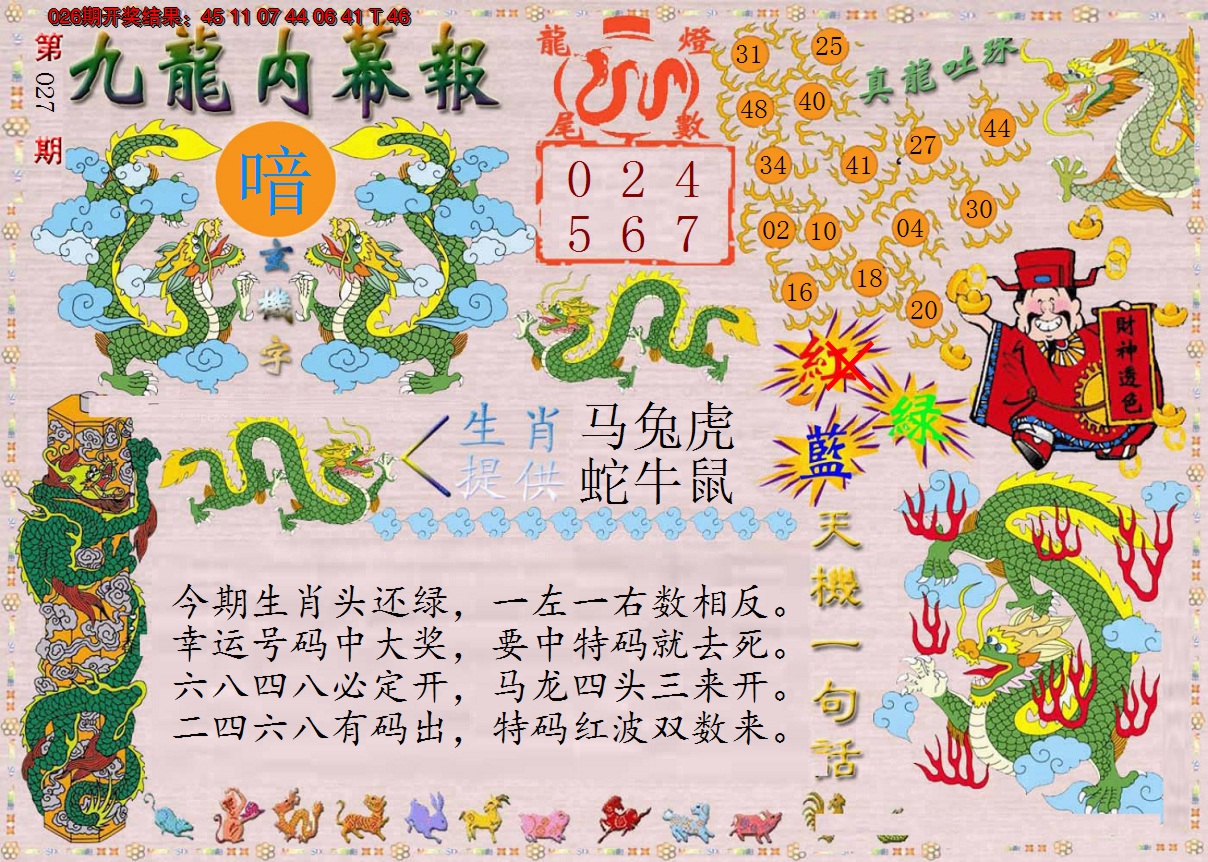 026期开奖结果：45 11 07 44 06 41 T 46
第027期
九龍内幕報
喑
玄機字
龍燈
尾數
0 2 4
5 6 7
真龍吐珠
31 25
48 40
27 44
34 41
30
02 10 04
18
16 20
財神透色
紅
绿
藍
生肖 马兔虎
提供 蛇牛鼠
天機一句话
今期生肖头还绿，一左一右数相反。
幸运号码中大奖，要中特码就去死。
六八四八必定开，马龙四头三来开。
二四六八有码出，特码红波双数来。